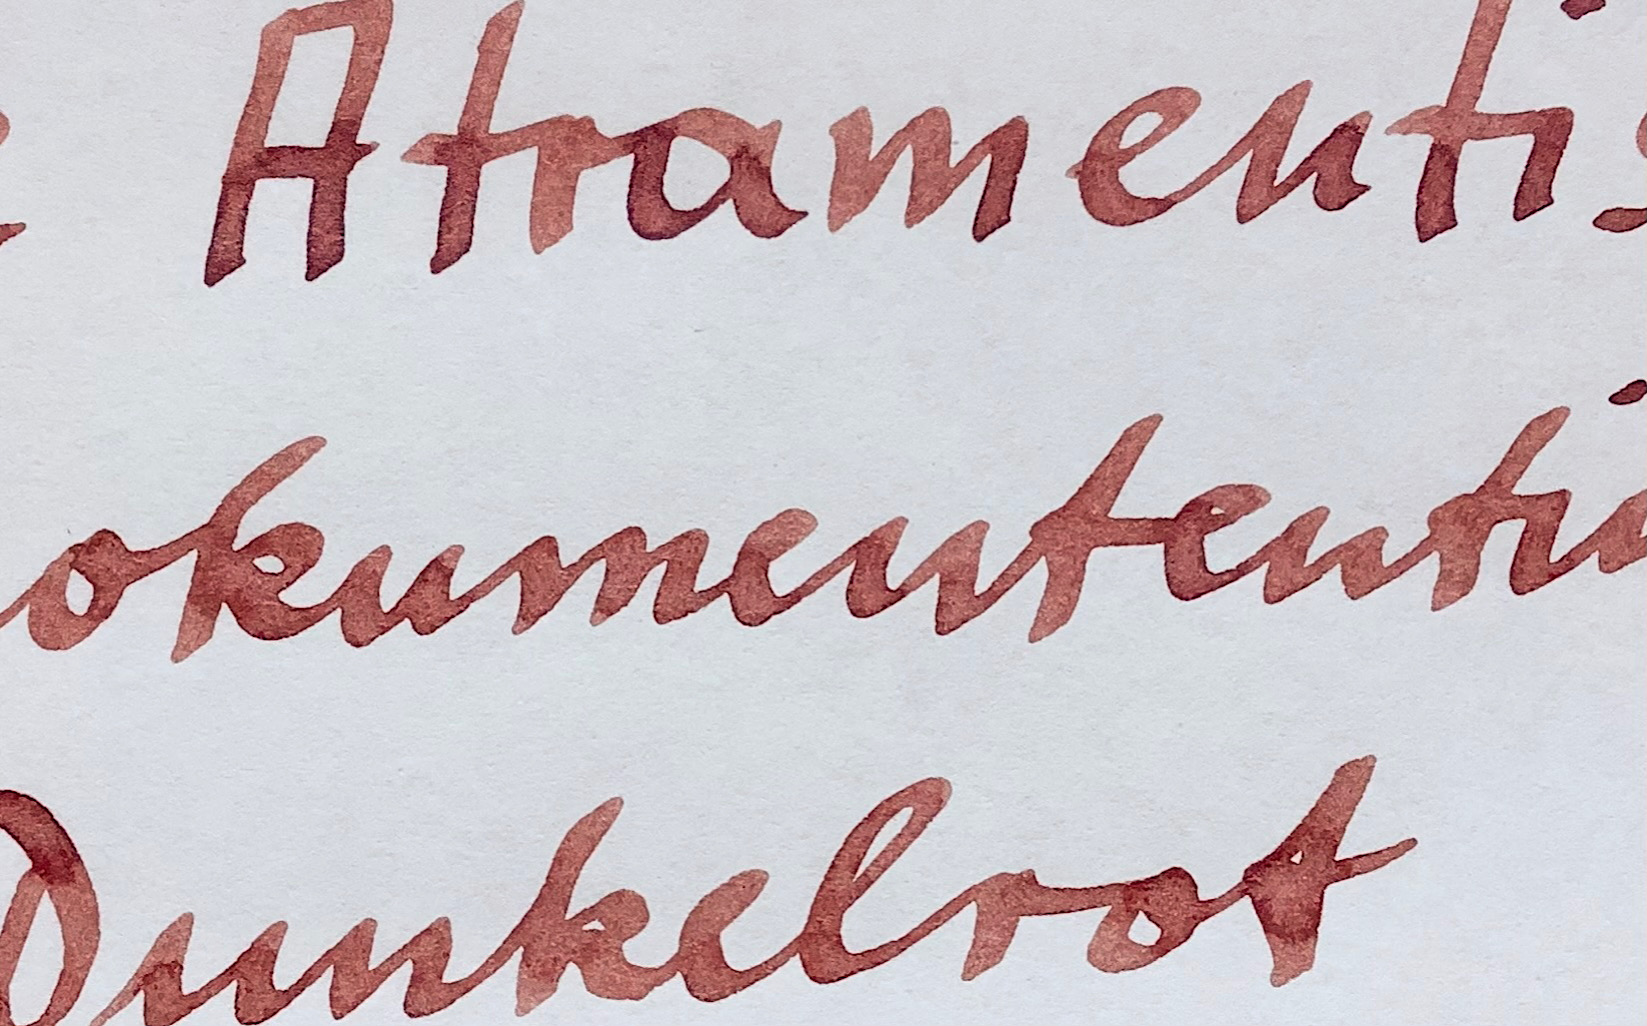 Atramentis
okumententi
Dunkelrot